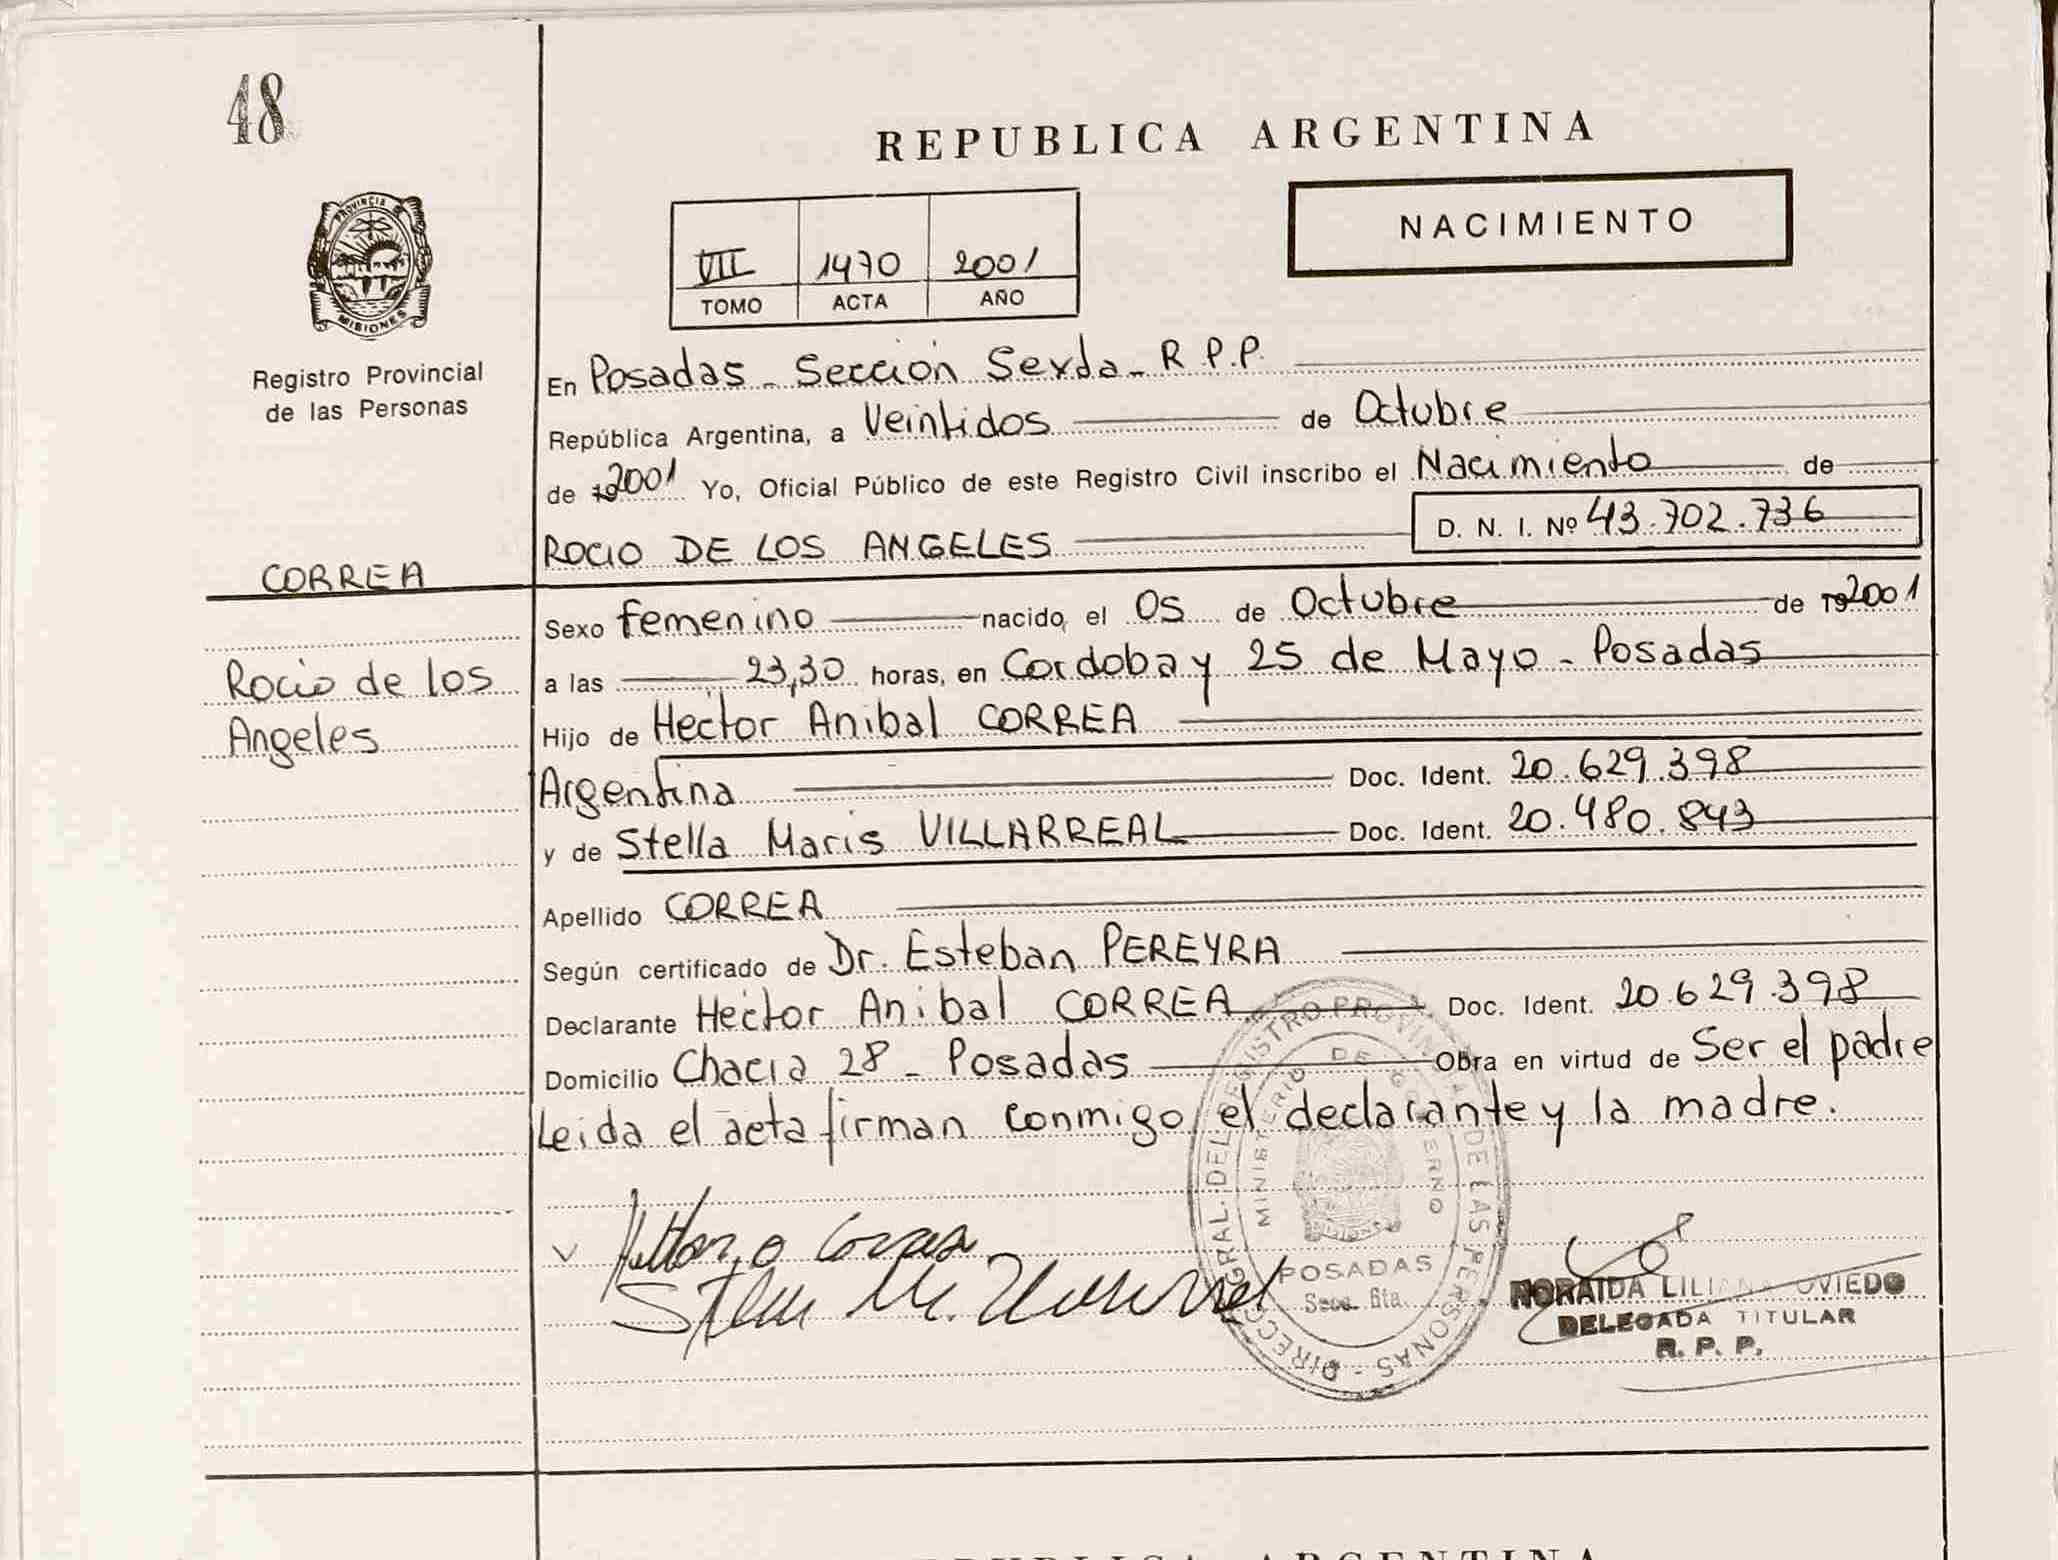 48
REPUBLICA ARGENTINA
NACIMIENTO
VII 1470 2001
TOMO ACTA AÑO
PROVINCIA DE
MISIONES
Registro Provincial
de las Personas
En Posadas - Sección Sexta - R.P.P.
República Argentina, a Veintidos de Octubre
de 192001 Yo, Oficial Público de este Registro Civil inscribo el Nacimiento de
ROCIO DE LOS ANGELES D. N. I. Nº 43.702.736
CORREA
Rocio de los
Angeles
Sexo femenino nacido, el 05 de Octubre de 192001
a las 23,30 horas, en Cordoba y 25 de Mayo - Posadas
Hijo de Hector Anibal CORREA
Argentina Doc. Ident. 20.629.398
y de Stella Maris VILLARREAL Doc. Ident. 20.480.843
Apellido CORREA
Según certificado de Dr. Esteban PEREYRA
Declarante Hector Anibal CORREA Doc. Ident. 20.629.398
Domicilio Chacra 28 - Posadas Obra en virtud de Ser el padre
Leida el acta firman conmigo el declarante y la madre.
DIRECC. GRAL. DEL REGISTRO PROVINCIAL DE LAS PERSONAS
MINISTERIO DE GOBIERNO
POSADAS
Secc. 6ta.
NORAIDA LILIANA OVIEDO
DELEGADA TITULAR
R. P. P.
REPUBLICA ARGENTINA